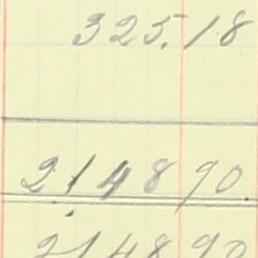 325.18
214890
214890